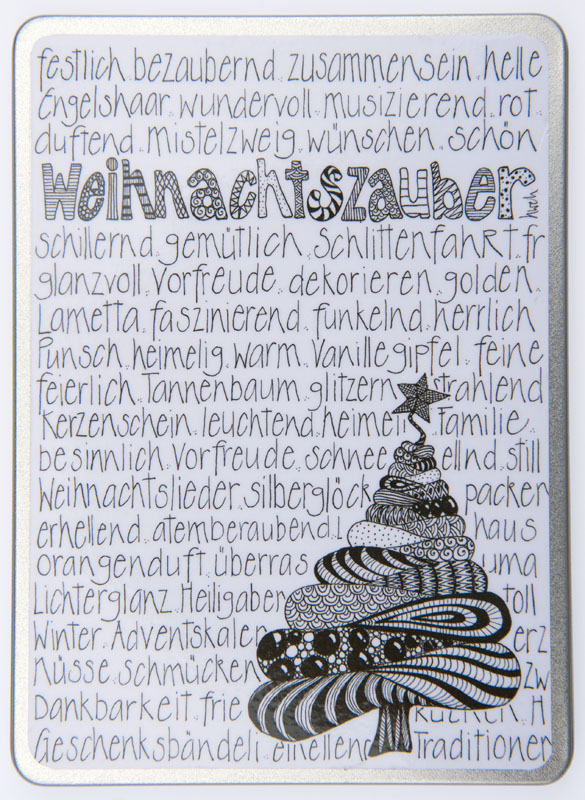 festlich. bezaubernd. zusammensein. helle
Engelshaar. wundervoll. musizierend. rot
duftend. Mistelzweig. wünschen. schön
Weihnachtszauber
schillernd. gemütlich. Schlittenfahrt. fr
glanzvoll. Vorfreude. dekorieren. golden.
Lametta. faszinierend. funkelnd. herrlich
Punsch. heimelig. warm. Vanillegipfel. feine
feierlich. Tannenbaum. glitzern strahlend
Kerzenschein. leuchtend. heimeli Familie.
besinnlich. Vorfreude. schnee ellnd. still
Weihnachtslieder. silberglöck packen
erhellend. atemberaubend. haus
orangenduft. überras uma
Lichterglanz. Heiligaben toll
Winter. Adventskalen erz
nüsse. schmücken zw
Dankbarkeit. frie H
Geschenksbändeli. Traditionen